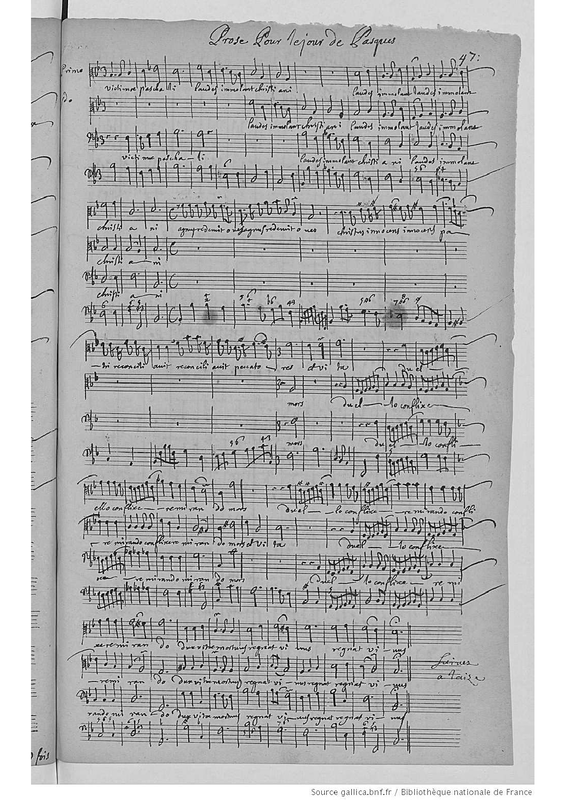 Prose Pour le jour de Pasques
47:
victime pascha li laudes immolant christi ani laudes immolant laudes immolant
laudes immolant christi ani laudes immolant laudes immolant
victime pascha - li laudes immolant christi a ni laudes immolant
christi a ni agnus redemit oves agnus redemit oves christus innocens innocens pa
christi a - ni
christi a ni
- tri reconcili avit reconcili avit peccato - res et vi ta duel
mors duel - lo conflixe
mors du el - lo confli
ello conflixe - re mi ran do mors duel - lo conflixe - re mi rando confli
- re mirando conflixere mi ran do mors et vi ta duel - lo conflixe -
xe - re mirando mi ran do mors duel - lo conflixe - re mi
xe re mi ran do dux vite mortuus regnat vi vus regnat vi - vus
- re mi ran do dux vite mortuus regnat vi - vus regnat vi - vus
rando mi ran - do dux vite mortuus regnat vi - vus regnat regnat vi - vus
fois
Source gallica.bnf.fr / Bibliothèque nationale de France